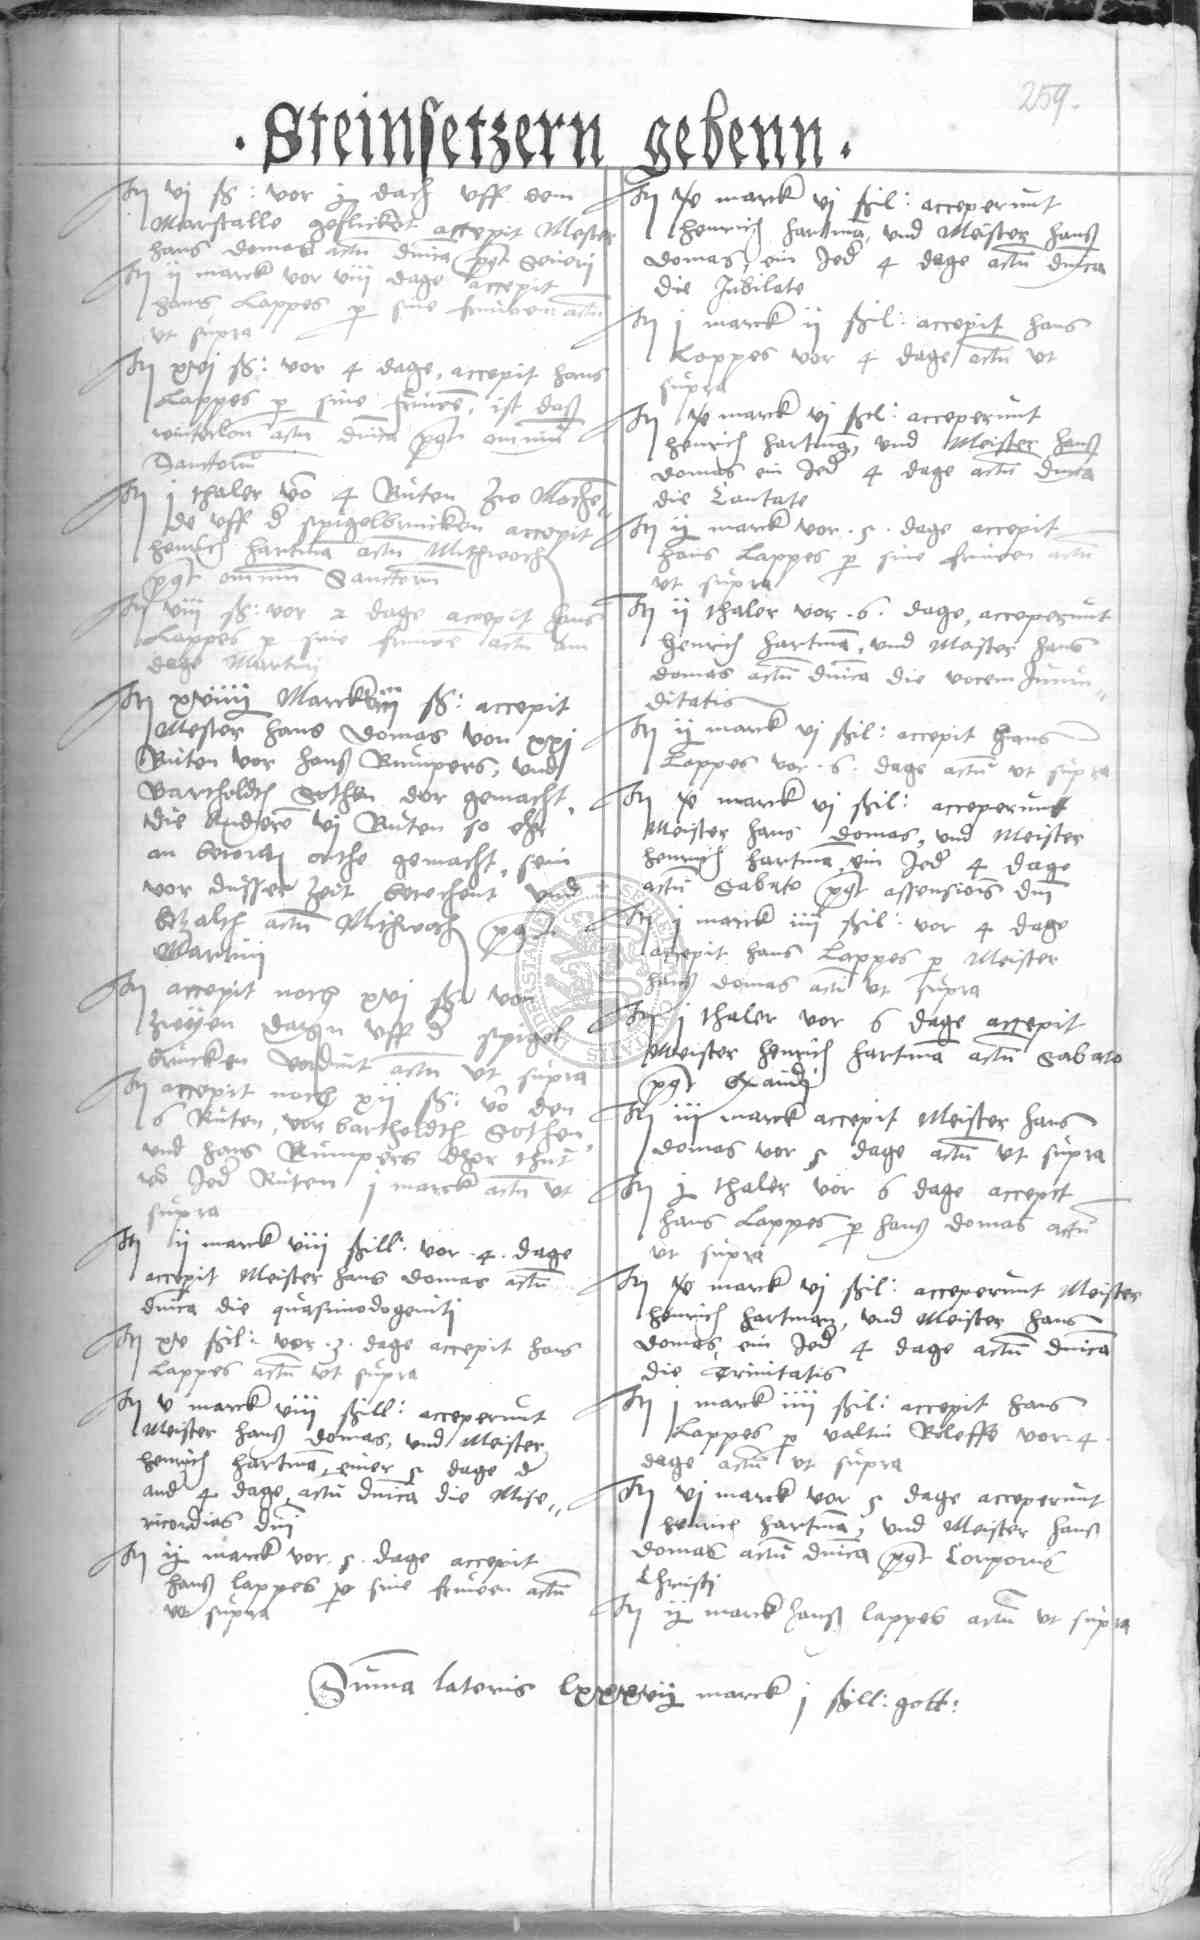 259.
. Steinsetzern gebenn .
Itm vj ß: vor j dach uff dem
Marstalle geflicket accepit Mester
hans domas actū dnīca pꝰt Severi
Itm ij marck vor viij dage accepit
hans Lappes p sine fruwen actū
ut supra
Itm xvj ß: vor 4 dage, accepit hans
Lappes p sine fruwē, ist daß
winterlon actū dnīca pꝰt omniū
Sanctorū
Itm j thaler vō 4 Ruten
de uff d spigelbrucken accepit
henrich hartmā actū Mithwoch
pꝰt omniū Sanctorū
Itm viij ß: vor 2 dage accepit hans
Lappes p sine fruwē actū am
dage Martini
Itm xviiij Marck iij ß: accepit
Mester hans domas von xxj
Ruten vor hanß Rumpers, und
Bartholdth Sothen dor gemacht,
die Anderē vj Ruten so ehr
an orthe gemacht, sein
vor dusser Zeit berechent und
bezalth actū Mithwoch pꝰt
Martini
Itm accepit noch xvj ß vor
zweyen dagen uff d spigel
brucken vordint actū ut supra
Itm accepit noch xij ß: vō den
6 Ruten, vor bartholdth Sothen,
und hans Rumpers dhor thut
vō Jed Ruten j marck actū ut
supra
Itm ij marck viij ßill: vor . 4 . dage
accepit Meister hans domas actū
dnīca die quasimodogeniti
Itm xv ßil: vor . 3 . dage accepit hans
Lappes actū ut supra
Itm v marck viij ßill: acceperunt
Meister hanß domas, und Meister
henrich hartmā, einer 5 dage d
and 4 dage, actū dnīca die Mise„
ricordias dnī
Itm ij marck vor . 5 . dage accepit
hanß lappes p sine fruwen actū
ut supra
Itm marck vj ßil: acceperunt
henrich hartmā, und Meister hanß
domas, ein Jed 4 dage actū dnīca
die Jubilate
Itm j marck ij ßil: accepit hans
Lappes vor 4 dage actū ut
supra
Itm marck vj ßil: acceperunt
henrich hartmā, und Meister hanß
domas ein Jed 4 dage actū dnīca
die Cantate
Itm ij marck vor . 5 . dage accepit
hans Lappes p sine fruwen actū
ut supra
Itm ij thaler vor . 6 . dage, acceperunt
henrich hartmā, und Meister hans
domas actū dnīca die vocem Jucun„
ditatis
Itm ij marck vj ßil: accepit hans
Lappes vor . 6 . dage actū ut supra
Itm marck vj ßil: acceperunt
Meister hans domas, und Meister
henrich hartmā, ein Jed 4 dage
actū Sabato pꝰt assensionis dnī
Itm j marck iiij ßil: vor 4 dage
accepit hans Lappes p Meister
hanß domas actū ut supra
Itm j thaler vor 6 dage accepit
Meister henrich hartmā actū Sabato
pꝰt Exaudi
Itm iij marck accepit Meister hans
domas vor 5 dage actū ut supra
Itm j thaler vor 6 dage accepit
hans Lappes p hanß domas actū
ut supra
Itm marck vj ßil: acceperunt Meister
henrich hartman, und Meister hans
domas, ein Jed 4 dage actū dnīca
die Trinitatis
Itm j marck iiij ßil: accepit hans
Lappes p valtin Roleffs vor . 4 .
dage actū ut supra
Itm vj marck vor 5 dage acceperunt
henrice hartmā, und Meister hanß
domas actū dnīca pꝰt Corporis
Christi
Itm ij marck hanß lappes actū ut supra
Sum̄a lateris lxxxvij marck j ßill: gott: